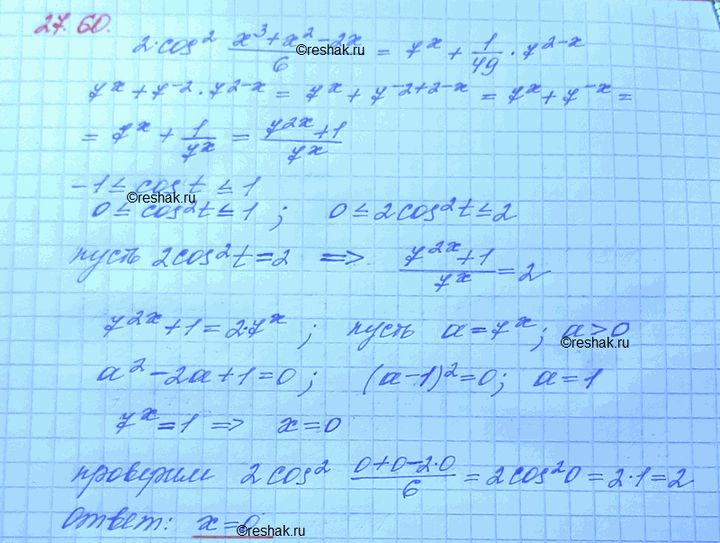 27.60.
2·cos² (x³+x²-2x)/6 = 7ˣ + 1/49 · 7²⁻ˣ
©reshak.ru
7ˣ + 7⁻² · 7²⁻ˣ = 7ˣ + 7⁻²⁺²⁻ˣ = 7ˣ + 7⁻ˣ =
= 7ˣ + 1/7ˣ = (7²ˣ+1)/7ˣ
-1 ≤ cos t ≤ 1
©reshak.ru
0 ≤ cos²t ≤ 1 ; 0 ≤ 2cos²t ≤ 2
пусть 2cos²t = 2 => (7²ˣ+1)/7ˣ = 2
7²ˣ + 1 = 2·7ˣ ; пусть a = 7ˣ ; a > 0
©reshak.ru
a² - 2a + 1 = 0 ; (a-1)² = 0 ; a = 1
7ˣ = 1 => x = 0
проверим 2cos² (0+0-2·0)/6 = 2cos²0 = 2·1 = 2
ответ: x = 0
©reshak.ru